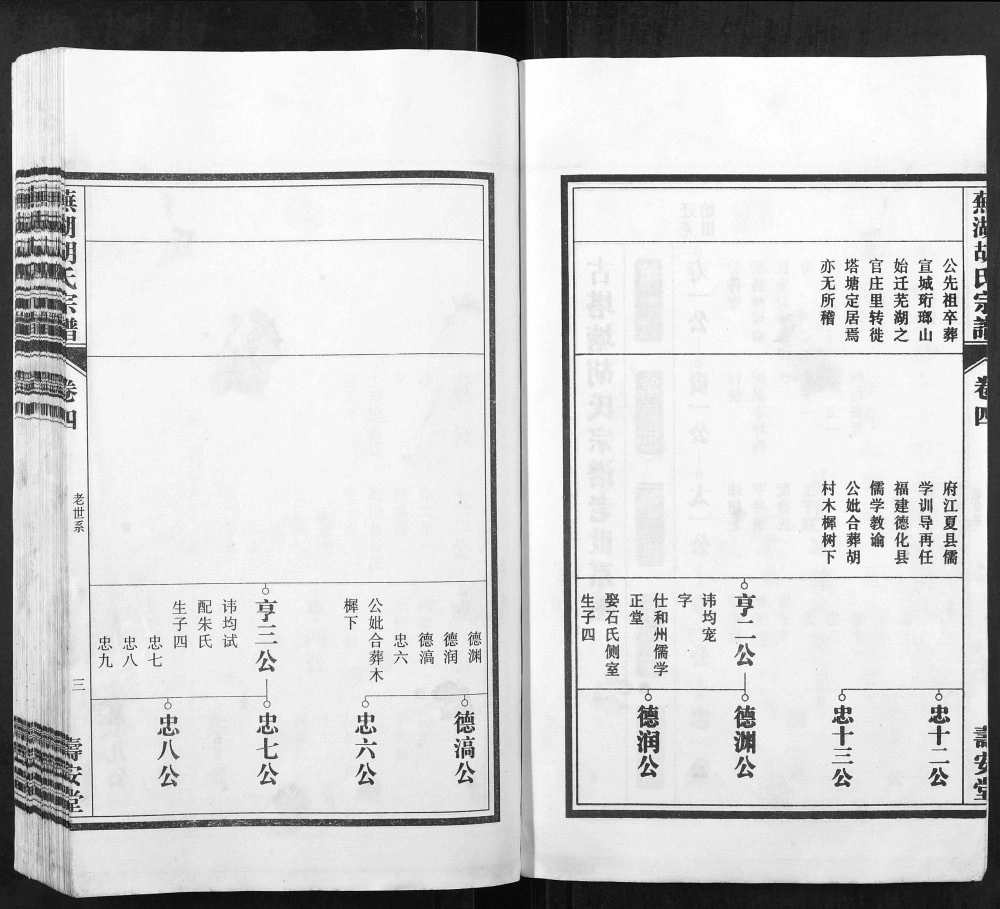 蕪湖胡氏宗譜
卷四
壽安堂
公先祖卒葬
宣城珩瑯山
始迁芜湖之
官庄里转徙
塔塘定居焉
亦无所稽
府江夏县儒
学训导再任
福建德化县
儒学教谕
公妣合葬胡
村木樨树下
亨二公
讳均宠
字
仕和州儒学
正堂
娶石氏侧室
生子四
忠十二公
忠十三公
德渊公
德润公
德渊
德润
德滈
忠六
公妣合葬木
樨下
亨三公
讳均试
配朱氏
生子四
忠七
忠八
忠九
德滈公
忠六公
忠七公
忠八公
蕪湖胡氏宗譜
卷四
老世系
三
壽安堂